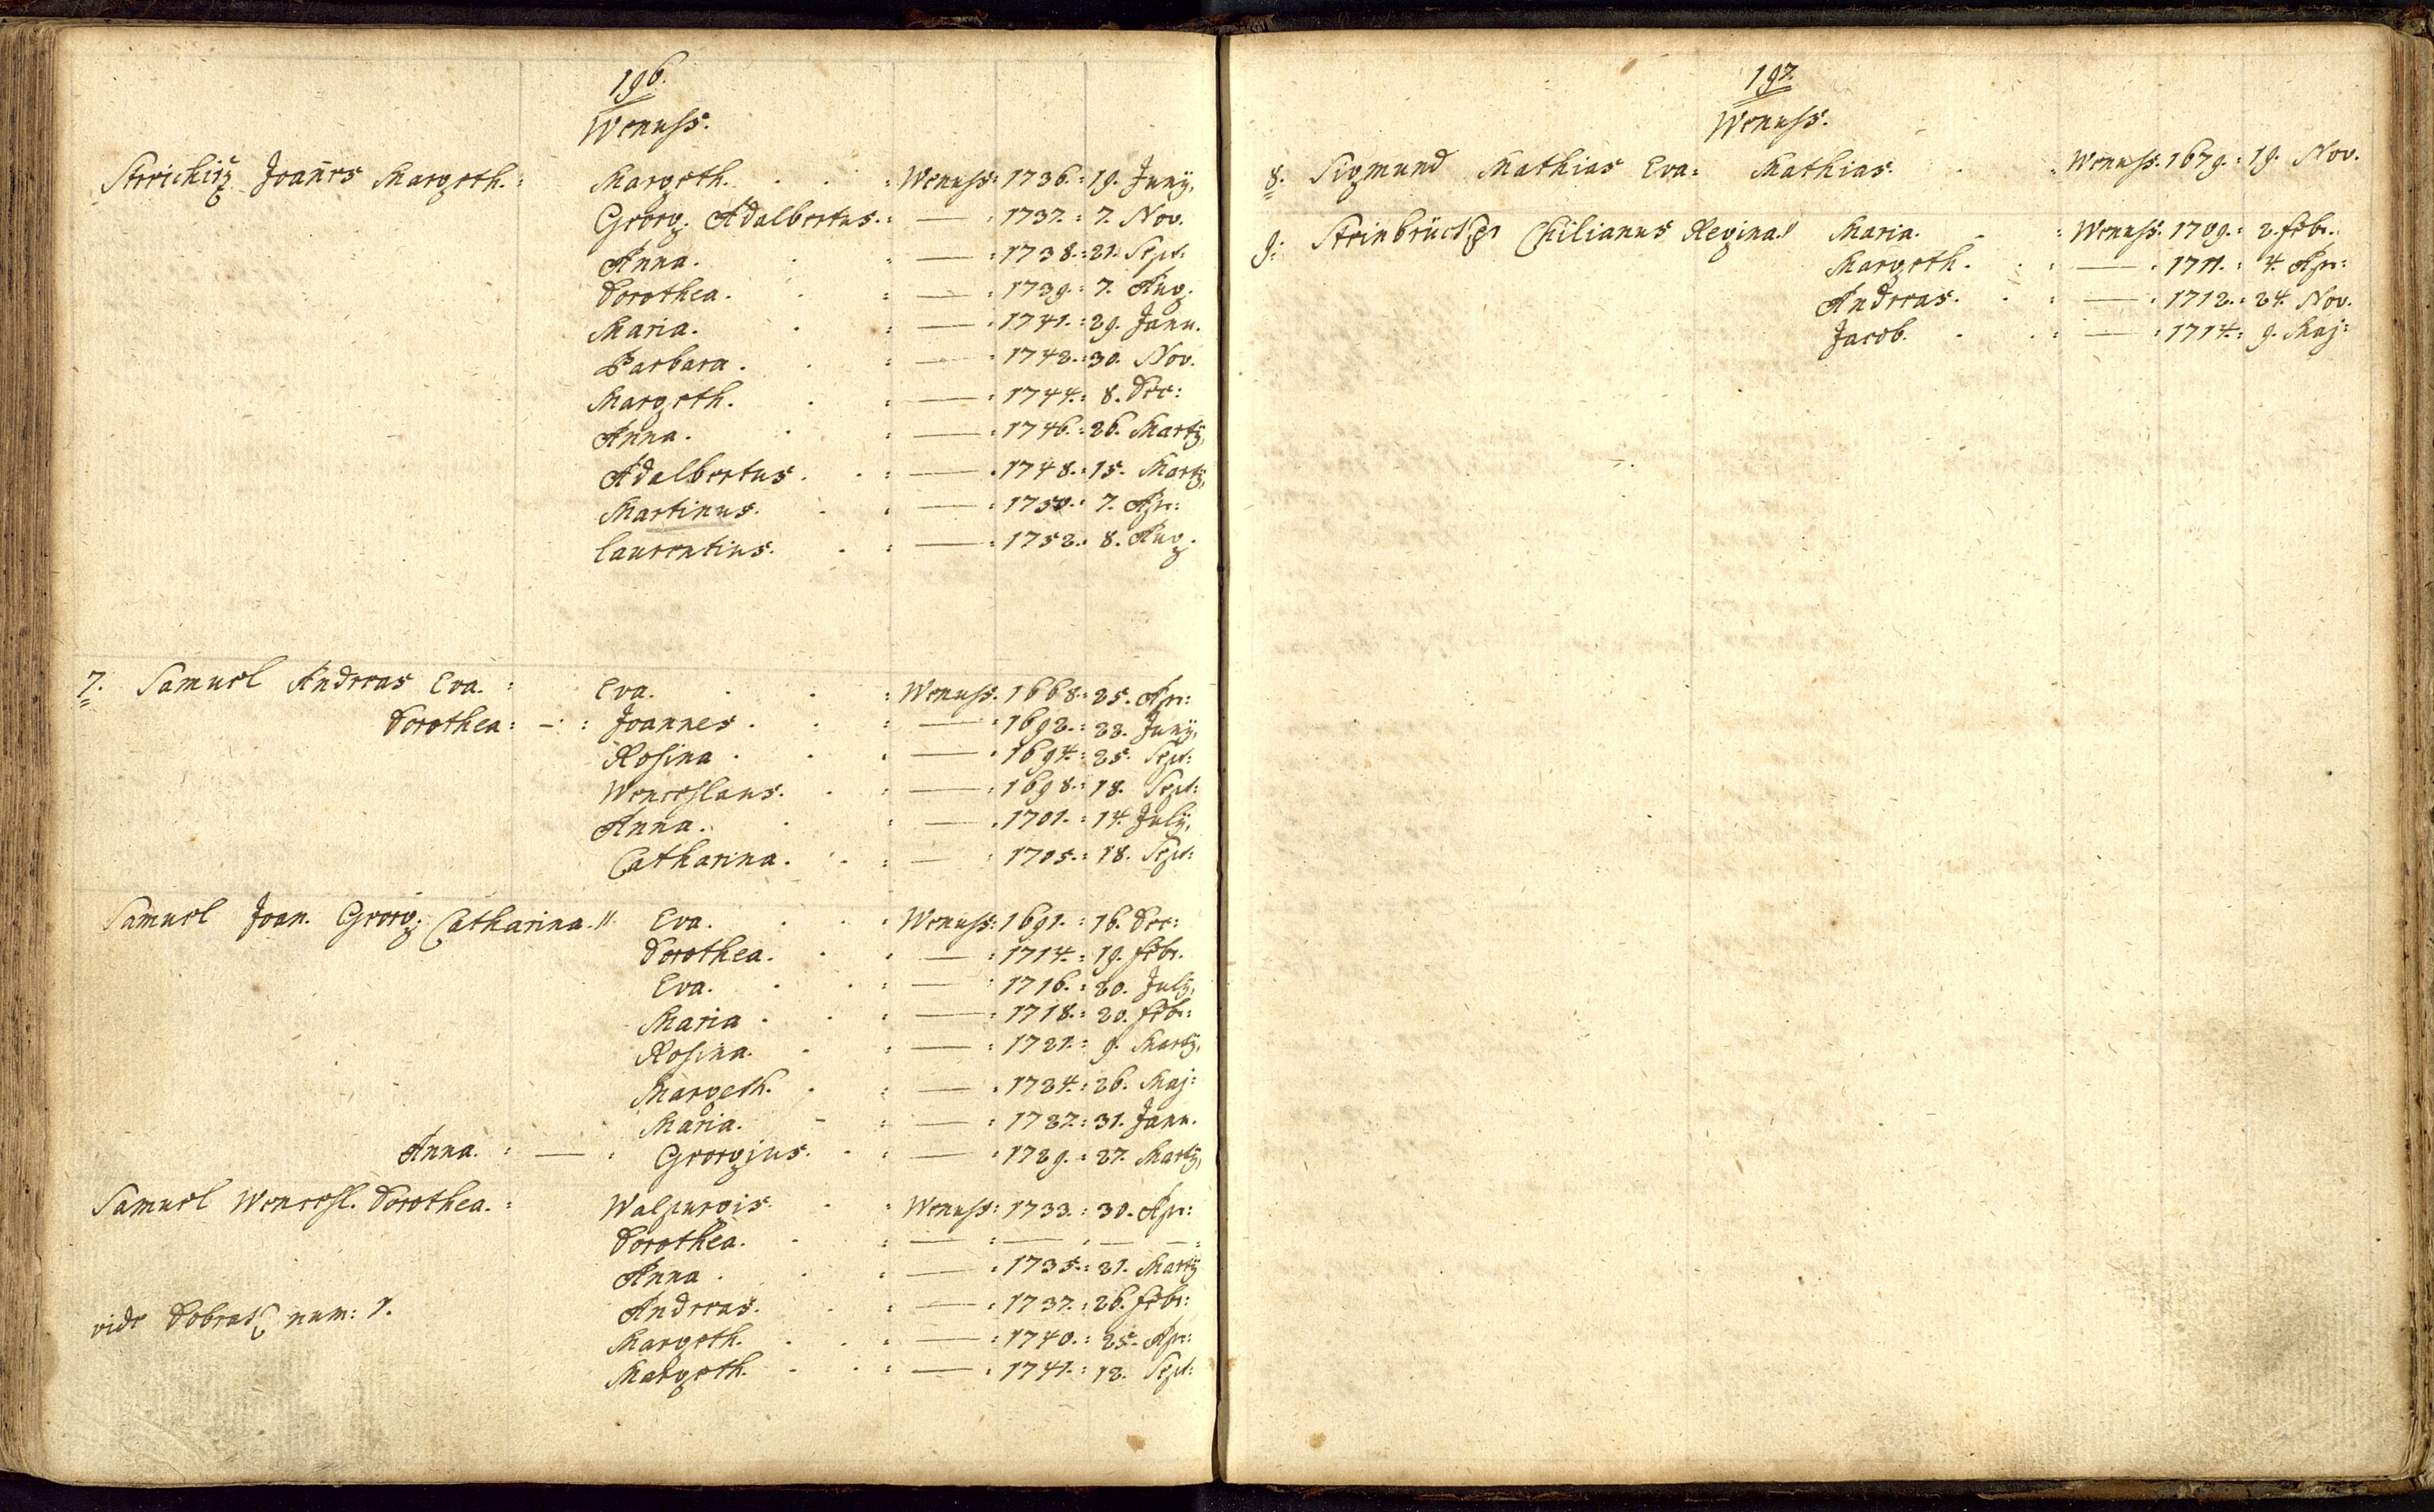 196.
Wenuss.
Streichirz Joanes Margeth. : Margeth. . . : Wenuss: 1736.: 19. Juny,
Georg. Adalbertus. : — : 1737. : 7. Nov.
Anna. . : — : 1738.: 21. Sept:
Dorothea. . : — : 1739.: 7. Aug.
Maria. . : — : 1741.: 29. Janu.
Barbara. . : — : 1742.: 30. Nov.
Margeth. . : — : 1744.: 8. Dec:
Anna. . : — : 1746.: 26. Marty,
Adalbertus. . : — : 1748.: 15. Marty,
Martinus. . : — : 1750.: 7. Apr:
Laurentius. . : — : 1752.: 8. Aug.
7. Samuel Andreas Eva. : Eva. . . : Wenuss. 1668.: 25. Apr:
Dorothea: — : Joannes. . : — : 1692.: 22. Juny,
Rosina. . : — : 1694.: 25. Sept:
Wenceslaus. . : — : 1698.: 18. Sept:
Anna. . : — : 1701.: 14. July,
Catharina. . : — : 1705.: 18. Sept:
Samuel Joan. Georg. Catharina.// Eva. . . : Wenuss: 1691. : 16. Dec:
Dorothea. . : — : 1714. : 19. Febr.
Eva. . . : — : 1716. : 20. July,
Maria. . : — : 1718.: 20. Febr:
Rosina. . : — : 1721.: 9. Marty,
Margeth. . : — : 1724.: 26. Maj:
Maria. - : — : 1727.: 31. Janu.
Anna. : — : Georgius. . : — : 1729. : 27. Marty,
Samuel Wencesl. Dorothea. : Walpurgis. . : Wenuss: 1733. : 30. Apr:
Dorothea. . : — : — : — — :
Anna. . : — : 1735.: 21. Marty
Andreas. . : — : 1737. : 26. Febr:
vide Dobrass num: 1.
Margeth. . : — : 1740. : 25. Apr:
Margeth. . : — : 1741. : 12. Sept:
197.
Wenuss.
8. Sigmund Mathias Eva: Mathias. . : Wenuss. 1679. : 19. Nov.
9: Steinbrücker Chilianus Regina.// Maria. - : Wenuss. 1709. : 2. Febr.
Margeth. . : — : 1711. : 4. Apr:
Andreas. . : — : 1712. : 24. Nov.
Jacob. . : — : 1714. : 9. Maj: